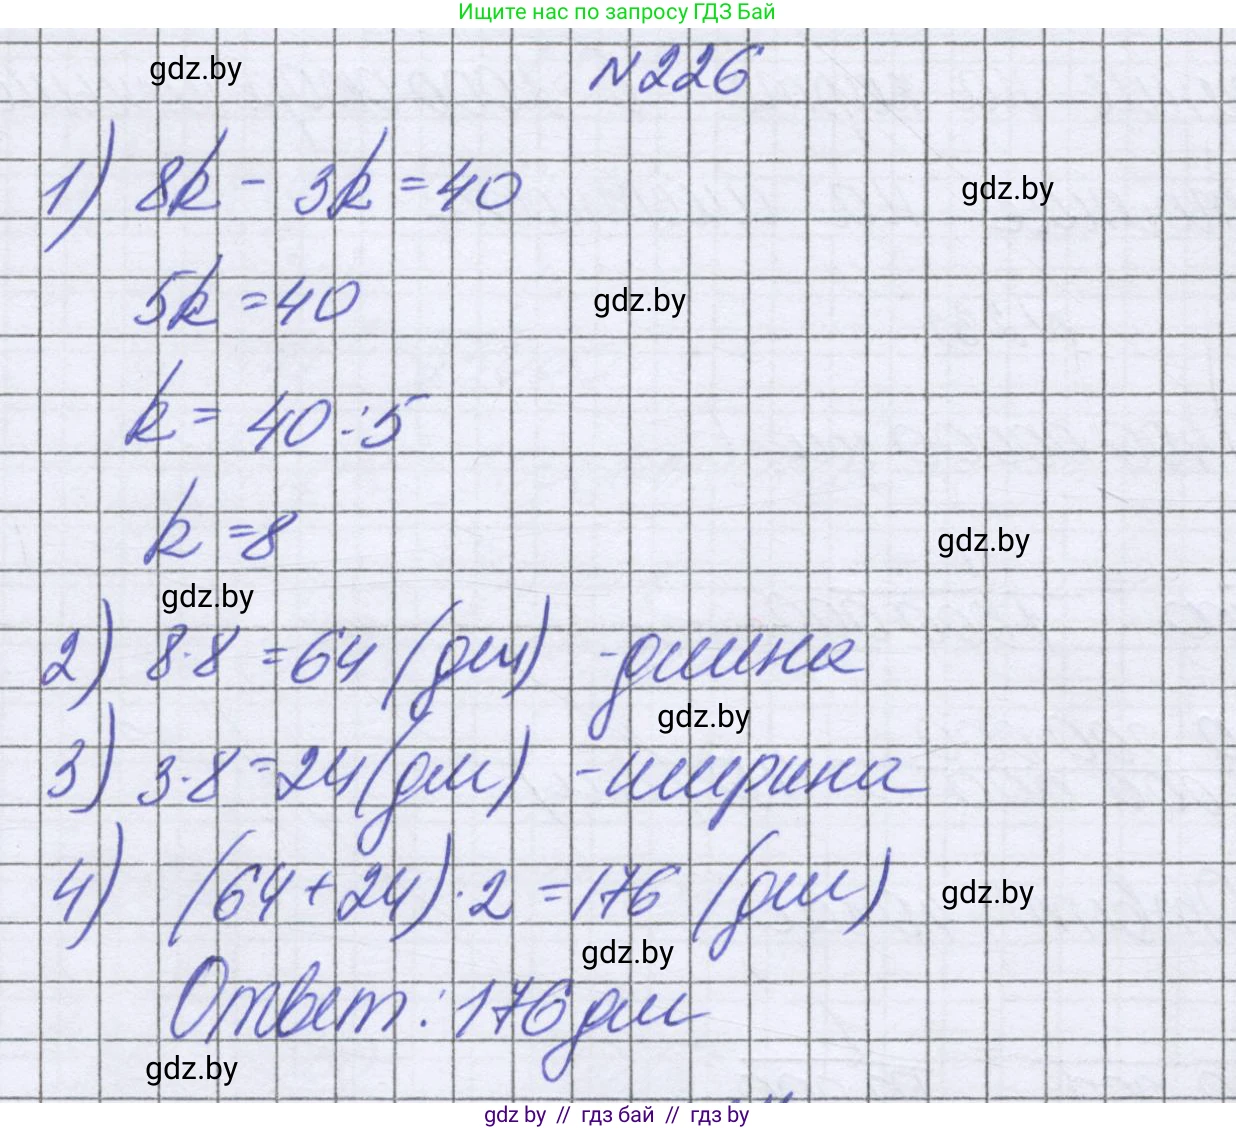 Ищите нас по запросу ГДЗ Бай
gdz.by
N226
1) 8k - 3k = 40
gdz.by
5k = 40
gdz.by
k = 40 : 5
k = 8
gdz.by
gdz.by
2) 8·8 = 64 (дм) - длина
gdz.by
3) 3·8 = 24 (дм) - ширина
4) (64 + 24) · 2 = 176 (дм)
gdz.by
gdz.by
Ответ: 176 дм
gdz.by
gdz by // гдз бай // гдз by